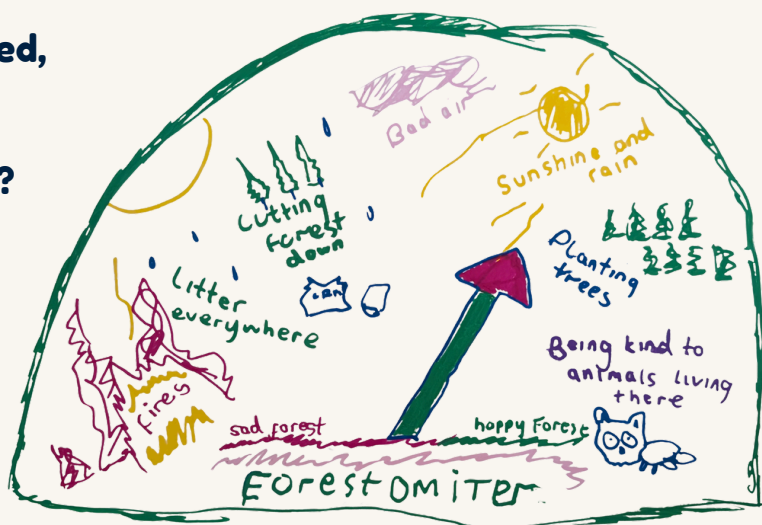 ed,
?
Bad air
Sunshine and
rain
Cutting
forest
down
Planting
trees
Litter
everywhere
Being kind to
animals living
there
fires
sad forest
happy Forest
Forestomiter